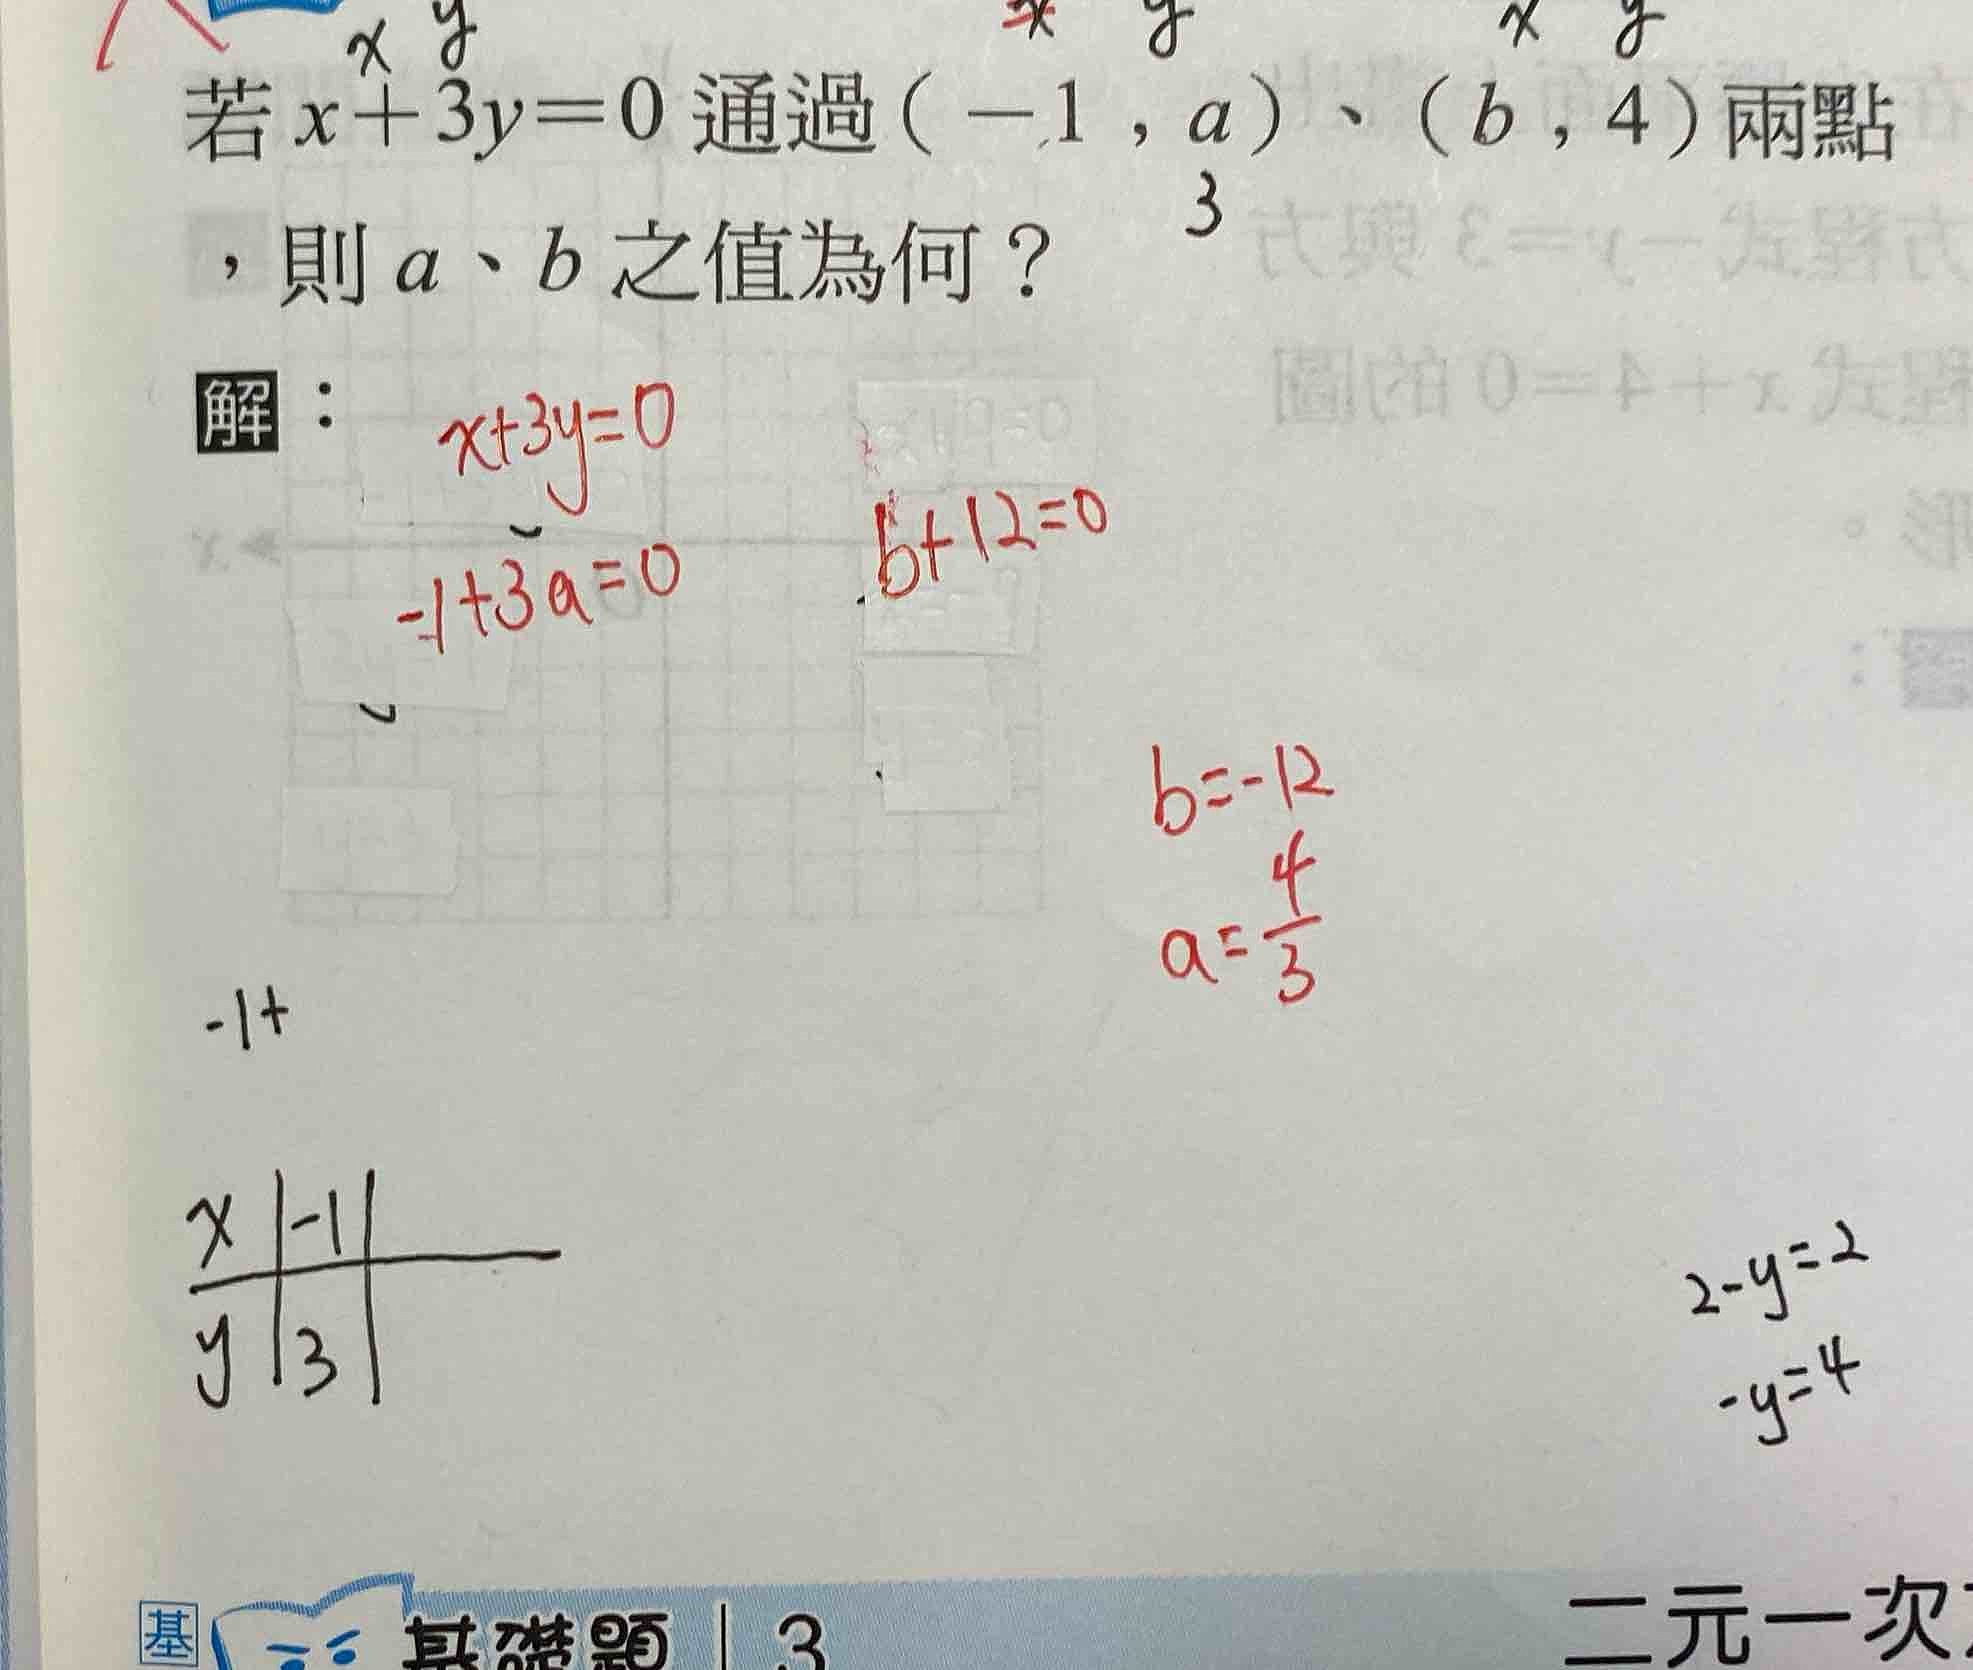 x y x y x y
若 x+3y=0 通過(-1,a)、(b,4)兩點
3
,則 a、b 之值為何?
解:
x+3y=0
b+12=0
-1+3a=0
b=-12
a=4/3
-1+
x -1
y 3
2-y=2
-y=4
基 基礎題 | 3 二元一次